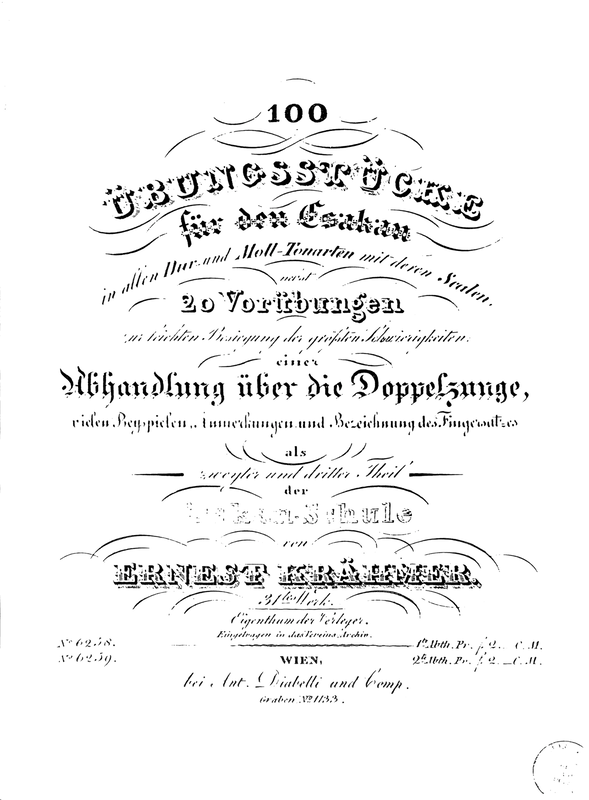 100
ÜBUNGSSTÜCKE
für den Csakan
in allen Dur- und Moll-Tonarten mit deren Scalen,
nebst
20 Vorübungen
zur leichten Besiegung der größten Schwierigkeiten,
einer
Abhandlung über die Doppelzunge,
vielen Beyspielen, Anmerkungen und Bezeichnung des Fingersatzes
als
zweyter und dritter Theil
der
Csakan-Schule
von
ERNEST KRÄHMER.
31tes Werk.
Eigenthum der Verleger.
Eingetragen in das Vereins Archiv.
No 6258. 1te Abth. Pr. f 2. _ C. M.
No 6259. 2te Abth. Pr. f 2. _ C. M.
WIEN,
bei Ant. Diabelli und Comp.
Graben No 1133.